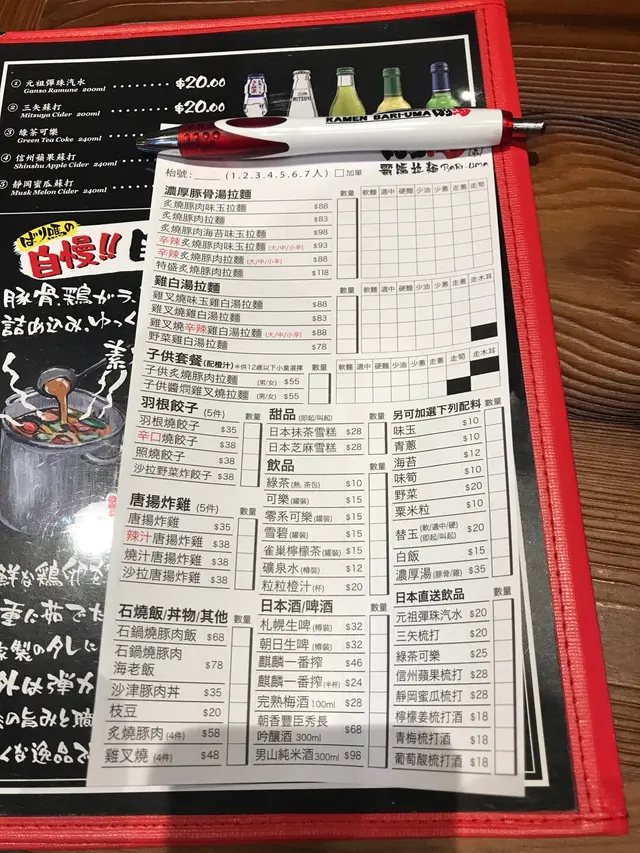 ① 元祖彈珠汽水 ········ $20.00
Ganso Ramune 200ml
② 三矢蘇打 ········ $20.00
Mitsuya Cider 200ml
③ 綠茶可樂
Green Tea Coke 240ml
④ 信州蘋果蘇打
Shinshu Apple Cider 240ml
⑤ 靜岡蜜瓜蘇打
Musk Melon Cider 240ml
RAMEN BARI-UMA
BARI-UMA
枱號: ____ (1.2.3.4.5.6.7人) □加單
濃厚豚骨湯拉麵 數量 軟麵 適中 硬麵 少油 少蔥 走蔥 走筍
炙燒豚肉味玉拉麵 $88
炙燒豚肉拉麵 $83
炙燒豚肉海苔味玉拉麵 $98
辛辣炙燒豚肉味玉拉麵 (大/中/小辛) $93
辛辣炙燒豚肉拉麵 (大/中/小辛) $88
特盛炙燒豚肉拉麵 $118
雞白湯拉麵 數量 軟麵 適中 硬麵 少油 少蔥 走蔥 走木耳
雞叉燒味玉雞白湯拉麵 $88
雞叉燒雞白湯拉麵 $83
雞叉燒辛辣雞白湯拉麵 (大/中/小辛) $88
野菜雞白湯拉麵 $78
子供套餐 (配橙汁) *供12歲以下小童選擇 數量 軟麵 適中 硬麵 少油 少蔥 走蔥 走筍 走木耳
子供炙燒豚肉拉麵 (男/女) $55
子供醬燜雞叉燒拉麵 (男/女) $55
羽根餃子 (5件) 數量
羽根燒餃子 $35
辛口燒餃子 $38
照燒餃子 $38
沙拉野菜炸餃子 $38
唐揚炸雞 (5件) 數量
唐揚炸雞 $35
辣汁唐揚炸雞 $38
燒汁唐揚炸雞 $38
沙拉唐揚炸雞 $38
石燒飯/丼物/其他 數量
石鍋燒豚肉飯 $68
石鍋燒豚肉
海老飯 $78
沙津豚肉丼 $35
枝豆 $20
炙燒豚肉 (4件) $58
雞叉燒 (4件) $48
甜品 (即起/叫起) 數量
日本抹茶雪糕 $28
日本芝麻雪糕 $28
飲品 數量
綠茶 (熱, 茶包) $10
可樂 (罐裝) $15
零系可樂 (罐裝) $15
雪碧 (罐裝) $15
雀巢檸檬茶 (罐裝) $15
礦泉水 (樽裝) $12
粒粒橙汁 (杯) $20
日本酒/啤酒 數量
札幌生啤 (樽裝) $32
朝日生啤 (樽裝) $32
麒麟一番搾 $46
麒麟一番搾 (半杯) $24
完熟梅酒 100ml $28
朝香豐臣秀長
吟釀酒 300ml $68
男山純米酒 300ml $98
另可加選下列配料 數量
味玉 $10
青蔥 $10
海苔 $12
味筍 $10
野菜 $20
粟米粒 $10
替玉 (軟/適中/硬) (即起/叫起) $20
白飯 $15
濃厚湯 (豚骨/雞) $35
日本直送飲品 數量
元祖彈珠汽水 $20
三矢梳打 $20
綠茶可樂 $25
信州蘋果梳打 $28
靜岡蜜瓜梳打 $28
檸檬姜梳打酒 $18
青梅梳打酒 $18
葡萄酸梳打酒 $18
ばり馬の
自慢!!
豚骨、鶏ガラ、
詰め込み、ゆっく